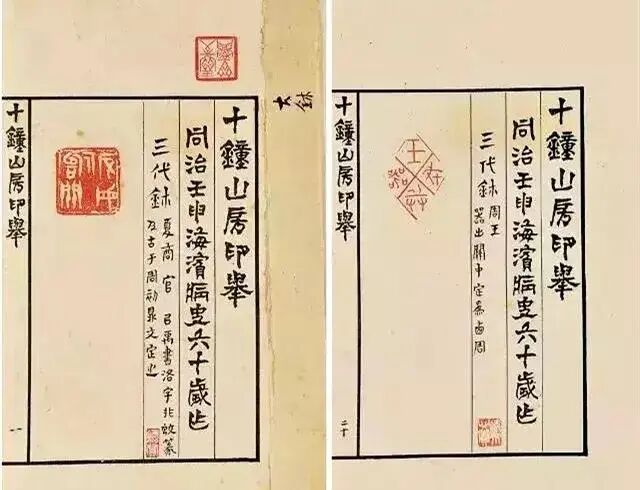 十鐘山房印舉
同治壬申海濱病史六十歲作
三代鉨 夏商官
及古于周初鼎文定之
十鐘山房印舉
一
大鉨
十鐘山房印舉
同治壬申海濱病史六十歲作
三代鉨 周王
器出關中定為西周
十鐘山房印舉
二十